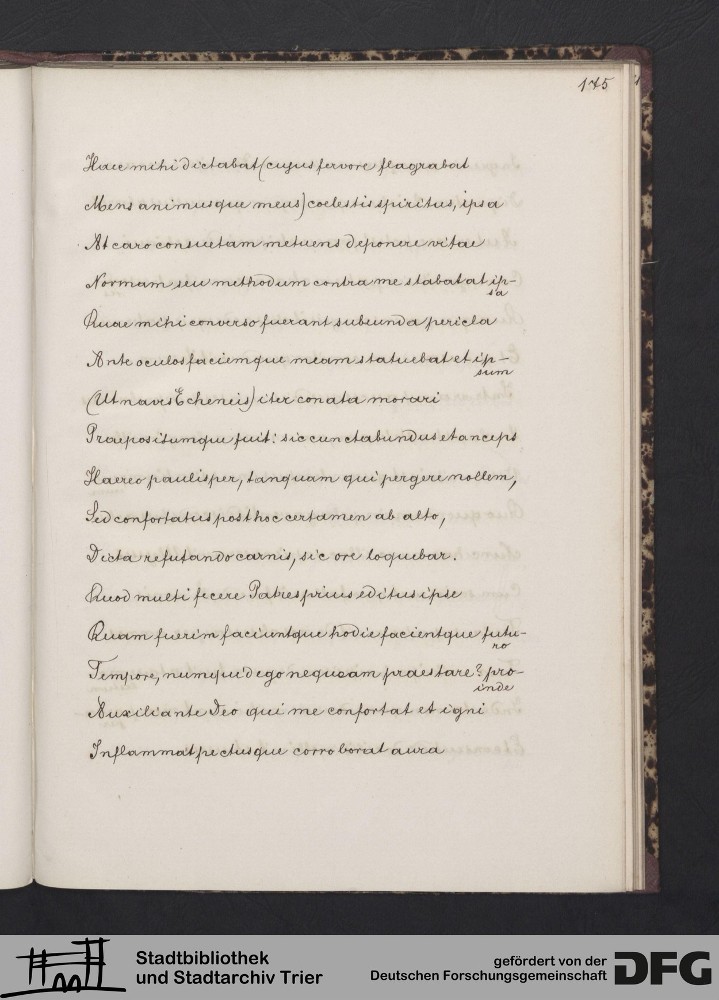 175
Haec mihi dictabat (cujus fervore flagrabat
Mens animusque meus) coelestis spiritus, ipsa
At caro consuetam metuens deponere vitae
Normam seu methodum contra me stabat at ip-
sa
Quae mihi converso fuerant subeunda pericla
Ante oculos faciemque meam statuebat et ip-
sum
(Ut navis Echeneis) iter conata morari
Praepositumque fuit: sic cunctabundus et anceps
Haereo paulisper, tanquam qui pergere nollem,
Sed confortatus post hoc certamen ab alto,
Dicta refutando carnis, sic ore loquebar.
Quod multi fecere Patres prius editus ipse
Quam fuerim faciuntque hodie facientque futu-
ro
Tempore, numquid ego nequeam praestare? pro-
inde
Auxiliante Deo qui me confortat et igni
Inflammat pectusque corroborat aura
Stadtbibliothek
und Stadtarchiv Trier
gefördert von der
Deutschen Forschungsgemeinschaft
DFG